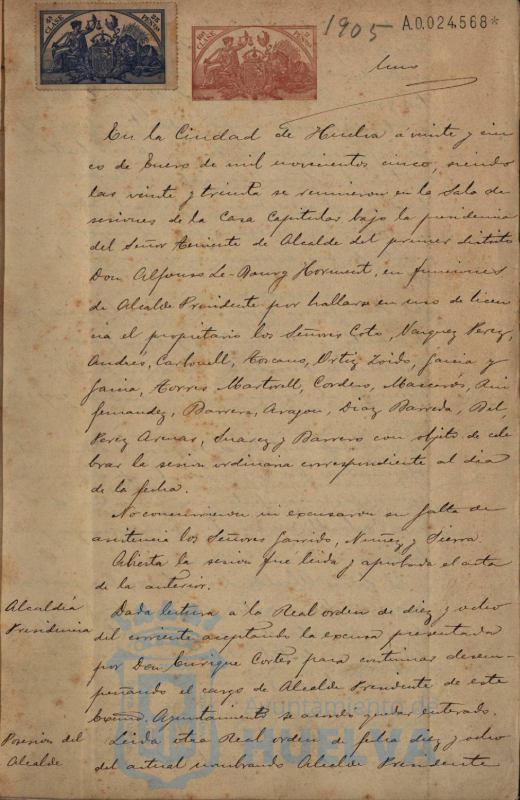 1905 A.0.024.568*
En la Ciudad de Huelva á veinte y cin
co de Enero de mil novecientos cinco, siendo
las veinte y treinta se reunieron en la Sala de
sesiones de la Casa Capitular bajo la presidencia
del Señor Teniente de Alcalde del primer distrito
Don Alfonso Le-Bourg Norment, en funciones
de Alcalde Presidente por hallarse en uso de licen
cia el propietario los Señores Coto, Vazquez Perez,
Andrés, Carbonell, Toscano, Ortiz, Zoido, Garcia y
Garcia, Torres Martorell, Cordero, Mascarós,
Fernandez, Barrera, Aragon, Diaz Barreda, Bel,
Perez Arenas, Suarez y Barrero con objeto de cele
brar la sesion ordinaria correspondiente al dia
de la fecha.
No concurrieron ni excusaron su falta de
asistencia los Señores Garrido, Nuñez y Sierra.
Abierta la sesion fué leida y aprobada el acta
de la anterior.
Alcaldía
Presidencia
Dada lectura á la Real orden de diez y ocho
del corriente aceptando la excusa presentada
por Don Enrique Cortés para continuar desem-
peñando el cargo de Alcalde Presidente de este
Excmo. Ayuntamiento se acordó quedar enterado.
Posesion del
Alcalde
Leida otra Real orden de fecha diez y ocho
del actual nombrando Alcalde Presidente
Ayuntamiento de
HUELVA